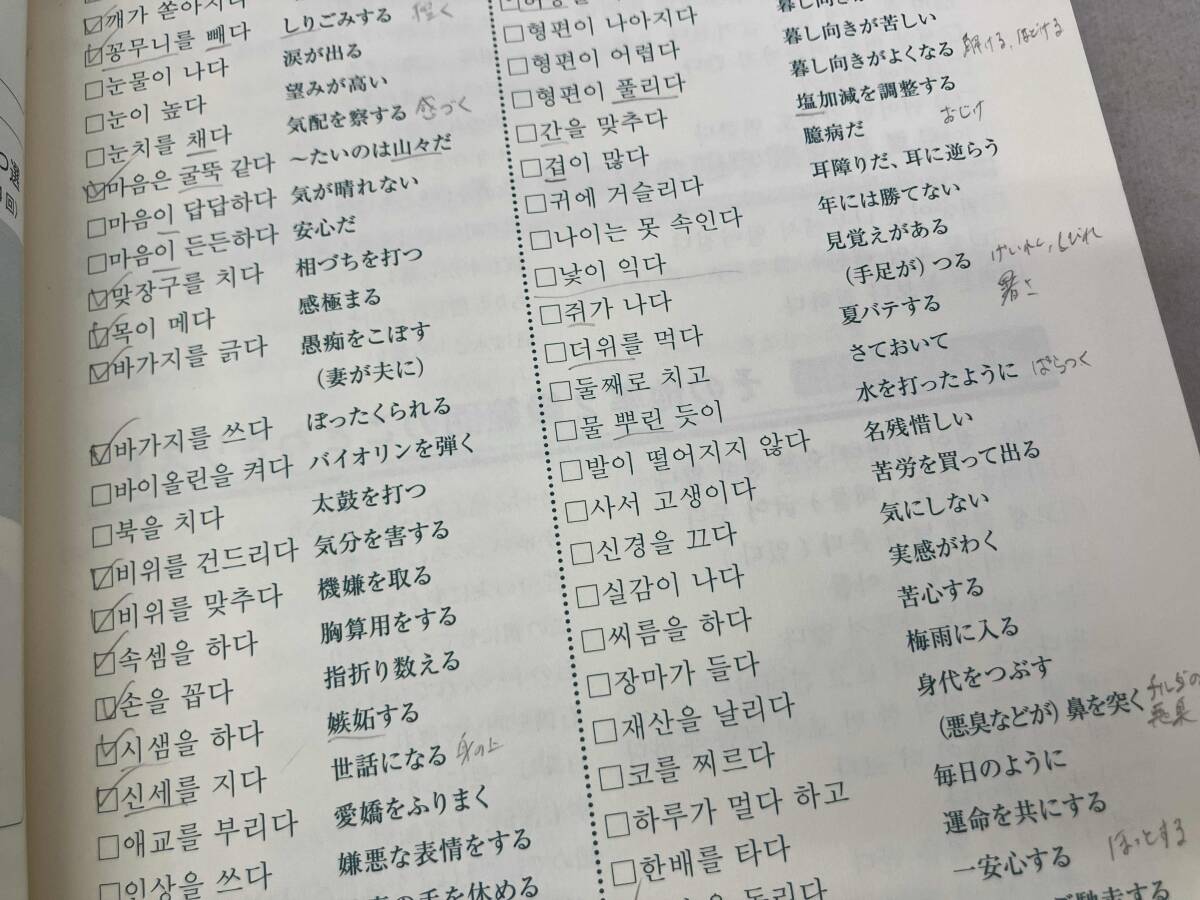 つ選
回)
깨가 쏟아지
□꽁무니를 빼다 しりごみする
□눈물이 나다 涙が出る
□눈이 높다 望みが高い
□눈치를 채다 気配を察する 感づく
□마음은 굴뚝 같다 〜たいのは山々だ
□마음이 답답하다 気が晴れない
□마음이 든든하다 安心だ
□맞장구를 치다 相づちを打つ
□목이 메다 感極まる
□바가지를 긁다 愚痴をこぼす
(妻が夫に)
□바가지를 쓰다 ぼったくられる
□바이올린을 켜다 バイオリンを弾く
□북을 치다 太鼓を打つ
□비위를 건드리다 気分を害する
□비위를 맞추다 機嫌を取る
□속셈을 하다 胸算用をする
□손을 꼽다 指折り数える
□시샘을 하다 嫉妬する
□신세를 지다 世話になる 身の上
□애교를 부리다 愛嬌をふりまく
□인상을 쓰다 嫌悪な表情をする
の手を休める
□형편이 나아지다 暮し向きが
□형편이 어렵다 暮し向きが苦しい
□형편이 풀리다 暮し向きがよくなる 解ける、ほどける
□간을 맞추다 塩加減を調整する
□겁이 많다 臆病だ おじけ
□귀에 거슬리다 耳障りだ、耳に逆らう
□나이는 못 속인다 年には勝てない
□낯이 익다 見覚えがある
□쥐가 나다 (手足が) つる けいれん、しびれ
□더위를 먹다 夏バテする 暑さ
□둘째로 치고 さておいて
□물 뿌린 듯이 水を打ったように ばらつく
□발이 떨어지지 않다 名残惜しい
□사서 고생이다 苦労を買って出る
□신경을 끄다 気にしない
□실감이 나다 実感がわく
□씨름을 하다 苦心する
□장마가 들다 梅雨に入る
□재산을 날리다 身代をつぶす
□코를 찌르다 (悪臭などが) 鼻を突く チルダの悪臭
□하루가 멀다 하고 毎日のように
□한배를 타다 運命を共にする
돌리다 一安心する ほっとする
ご馳走する